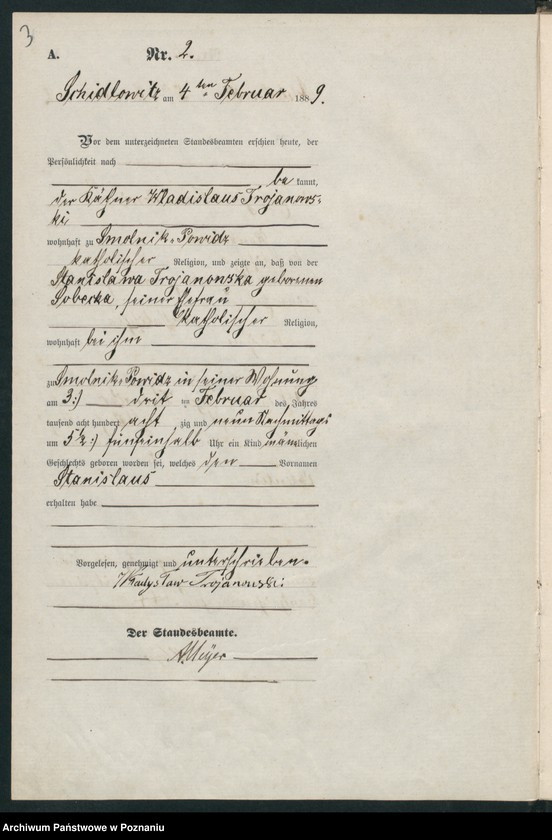 3
A. Nr. 2.
Schidlowitz am 4 ten Februar 1889.
Vor dem unterzeichneten Standesbeamten erschien heute, der
Persönlichkeit nach
be kannt,
der Käthner Wladislaus Trojanows-
ki
wohnhaft zu Smolnik-Powidz
katholischer Religion, und zeigte an, daß von der
Stanislawa Trojanowska geborenen
Sobecka, seiner Ehefrau
katholischer Religion,
wohnhaft bei ihm
zu Smolnik-Powidz in seiner Wohnung
am 3:) drit ten Februar des Jahres
tausend acht hundert acht zig und neun Nachmittags
um 5½:) fünfeinhalb Uhr ein Kind männlichen
Geschlechts geboren worden sei, welches den Vornamen
Stanislaus
erhalten habe
Vorgelesen, genehmigt und unterschrieben.
Władysław Trojanowski
Der Standesbeamte.
A. Meyer
Archiwum Państwowe w Poznaniu